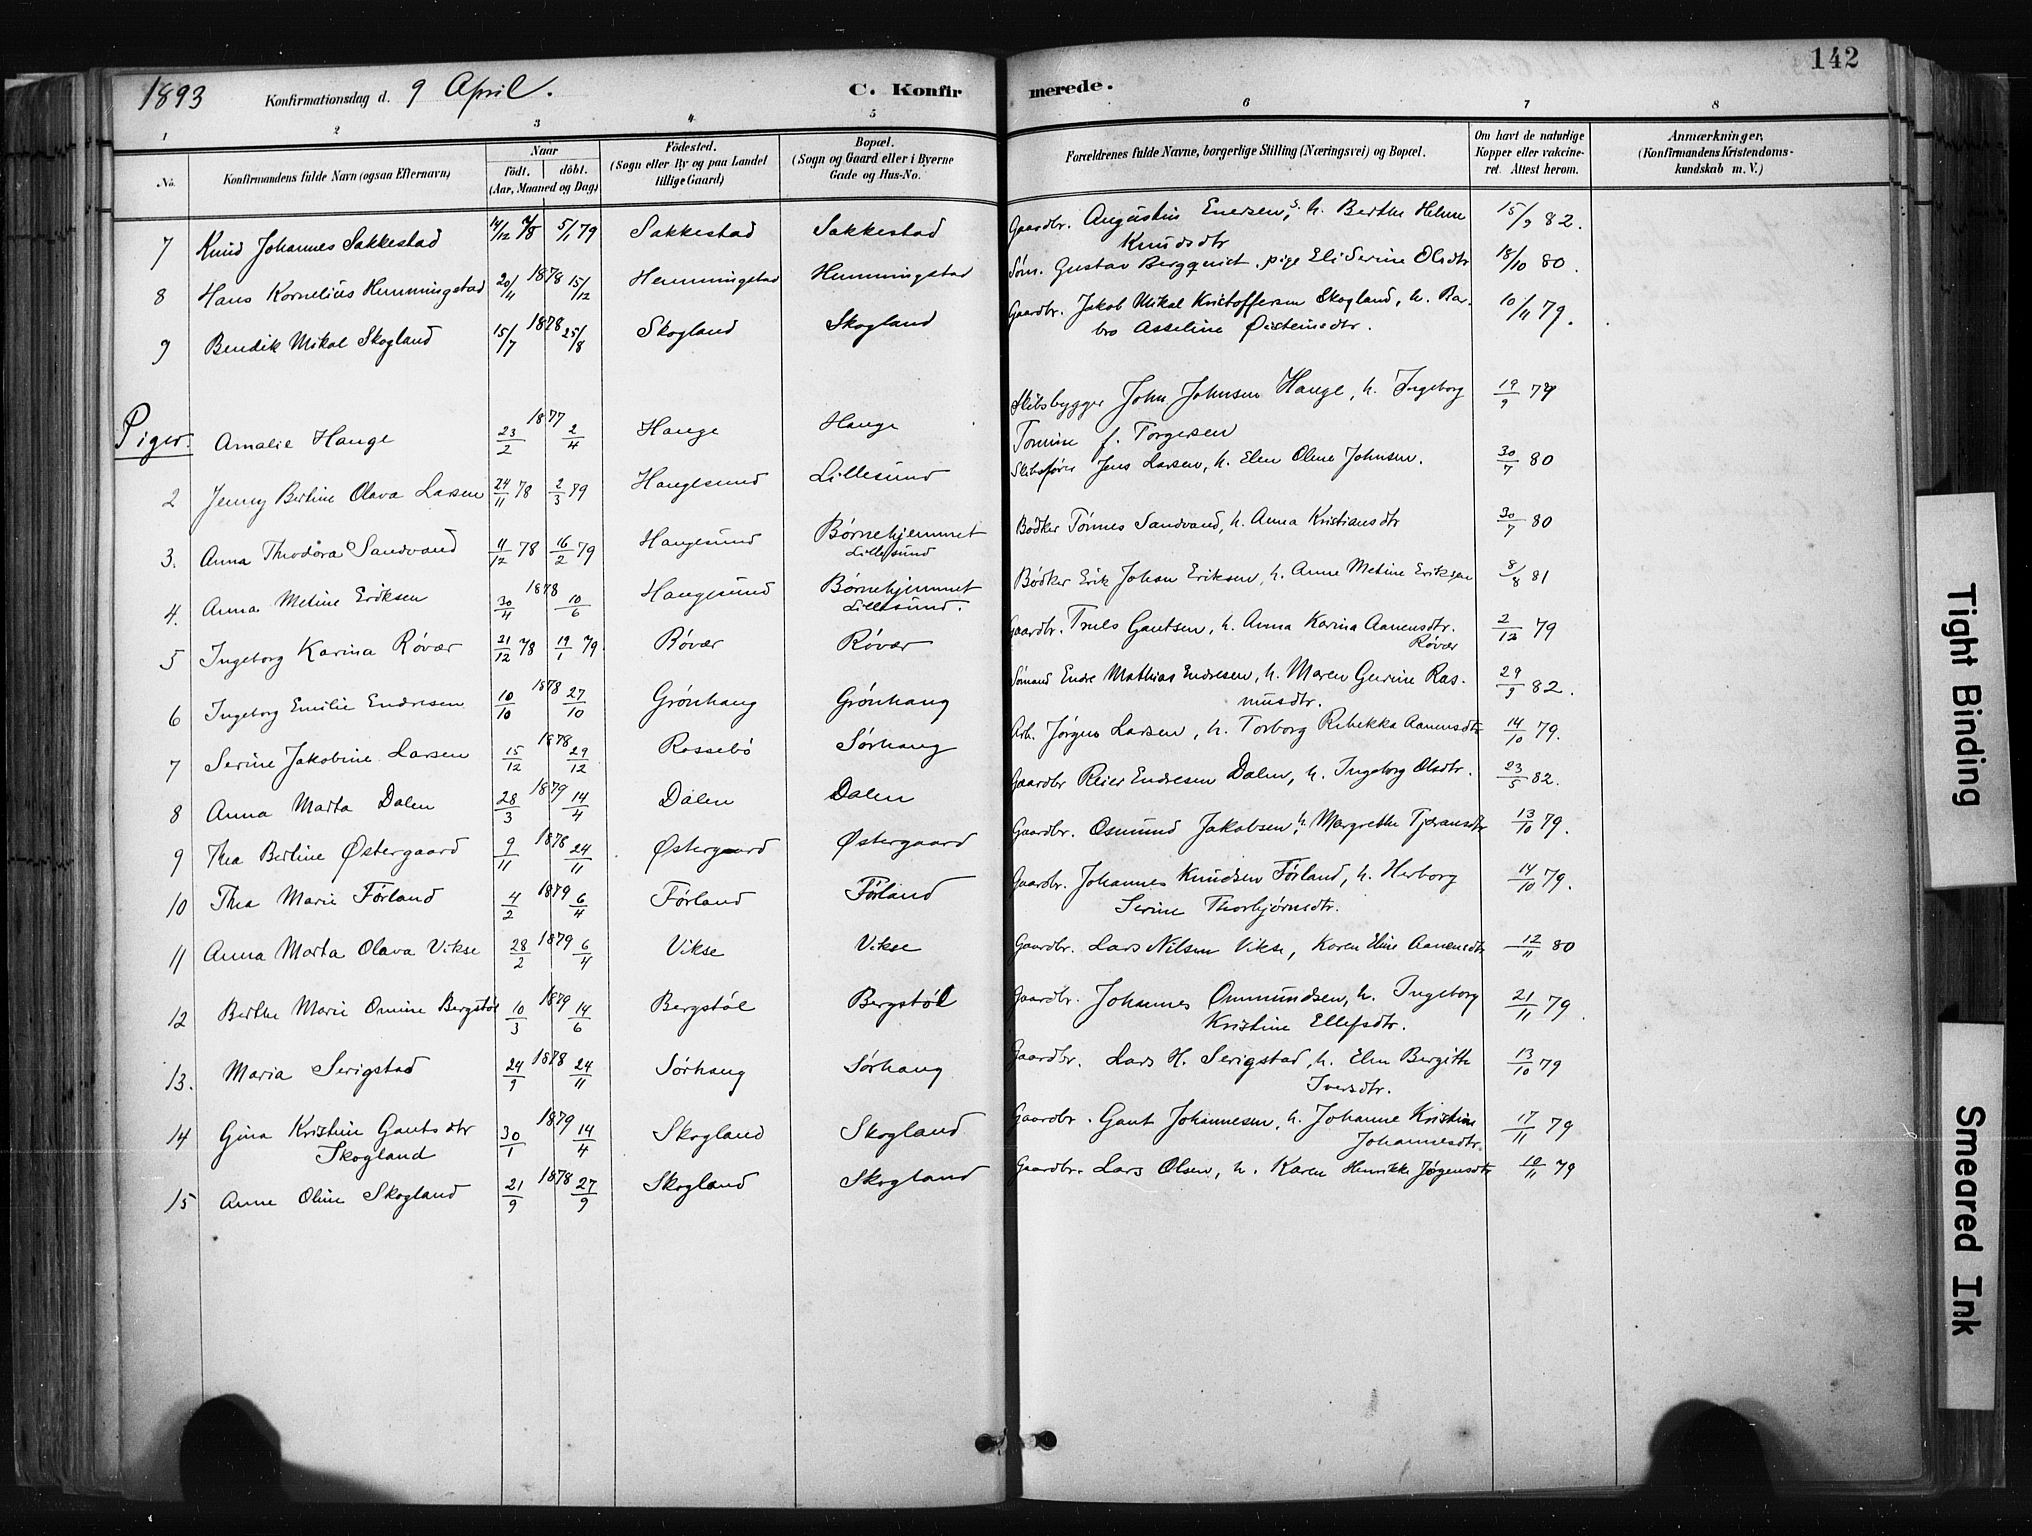 142
1893 Konfirmationsdag d. 9 April. C. Konfirmerede.
1 2 3 4 5 6 7 8
No. Konfirmandens fulde Navn (ogsaa Efternavn) Naar født. døbt. (Aar, Maaned og Dag) Fødested. (Sogn eller By og paa Landet tillige Gaard) Bopæl. (Sogn og Gaard eller i Byerne Gade og Hus-No. Forældrenes fulde Navne, borgerlige Stilling (Næringsvei) og Bopæl. Om havt de naturlige Kopper eller vakcineret. Attest herom. Anmærkninger, (Konfirmandens Kristendomskundskab m. V.)
7 Knud Johannes Sakkestad 14/12 78 5/1 79 Sakkestad Sakkestad Gaardbr. Augustin Enersen, h. Berthe Helene Knudsdtr 15/9 82.
8 Hans Kornelius Hemmingstad 20/11 1878 15/12 Hemmingstad Hemmingstad Søm. Gustav Bergquist, pige Eli Serine Olsdtr 18/10 80.
9 Bendik Mikal Skogland 15/7 1878 25/8 Skogland Skogland Gaardbr. Jakob Mikal Kristoffersen Skogland, h. Barbro Asseline Øistensdtr. 10/11 79.
Piger. Amalie Hauge 23/2 1877 2/4 Hauge Hauge Skibsbygger John Johnsen Hauge, h. Ingeborg Tomine f. Torgersen 19/9 77
2 Jenny Bertine Olava Larsen 24/11 78 2/3 79 Haugesund Lillesund Skibsfører Jens Larsen, h. Elen Oline Johnsen. 30/7 80
3. Anna Theodora Sandvand 11/12 78 16/2 79 Haugesund Børnehjemmet Lillesund Bødker Tønnes Sandvand, h. Anna Kristiansdtr 30/7 80
4. Anna Metine Eriksen 30/4 1878 10/6 Haugesund Børnehjemmet Lillesund. Bødker Erik Johan Eriksen, h. Anne Metine Eriksen 8/8 81
5 Ingeborg Karina Røvær 21/12 78 19/1 79. Røvær Røvær Gaardbr. Truls Gautsen, h. Anna Karina Aanensdtr. Røvær 2/12 79
6 Ingeborg Emilie Endresen 10/10 1878 27/10 Grønhaug Grønhaug Sømand Endre Mathias Endresen, h. Maren Gurine Rasmusdtr. 29/9 82.
7 Serine Jakobine Larsen 15/12 1878 29/12 Rossebø Sørhaug Arb. Jørgen Larsen, h. Torborg Rebekka Aanensdtr 14/10 79.
8 Anna Marta Dalen 28/3 1879 14/4 Dalen Dalen Gaardbr Reier Endresen Dalen, h. Ingeborg Olsdtr. 23/5 82.
9 Thea Bertine Østergaard 9/11 1878 24/11 Østergaard Østergaard Gaardbr. Osmund Jakobsen, h. Margrethe Tjøransdtr 13/10 79.
10 Thea Marie Førland 4/2 1879 6/4 Førland Førland Gaardbr. Johannes Knudsen Førland, h. Herborg Serine Thorbjørnsdtr. 14/10 79.
11 Anna Marta Olava Vikse 28/2 1879 6/4 Vikse Vikse Gaardbr. Lars Nilsen Vikse, Karen Eline Aanensdtr 12/11 80
12 Berthe Marie Omine Bergstøl 10/3 1879 14/6 Bergstøl Bergstøl Gaardbr. Johannes Ommundsen, h. Ingeborg Kristine Ellefsdtr. 21/11 79.
13. Maria Serigstad 24/9 1878 24/11 Sørhaug Sørhaug Gaardbr. Lars H. Serigstad, h. Elen Bergitte Iversdtr. 13/10 79
14 Gina Kristine Gautsdtr Skogland 30/1 1879 14/4 Skogland Skogland Gaardbr. Gaut Johannesen, h. Johanne Kristine Johannesdtr 17/11 79
15 Anne Oline Skogland 21/9 1878 27/9 Skogland Skogland Gaardbr. Lars Olsen, h. Karen Henrikke Jørgensdtr 10/11 79
Tight Binding
Smeared Ink